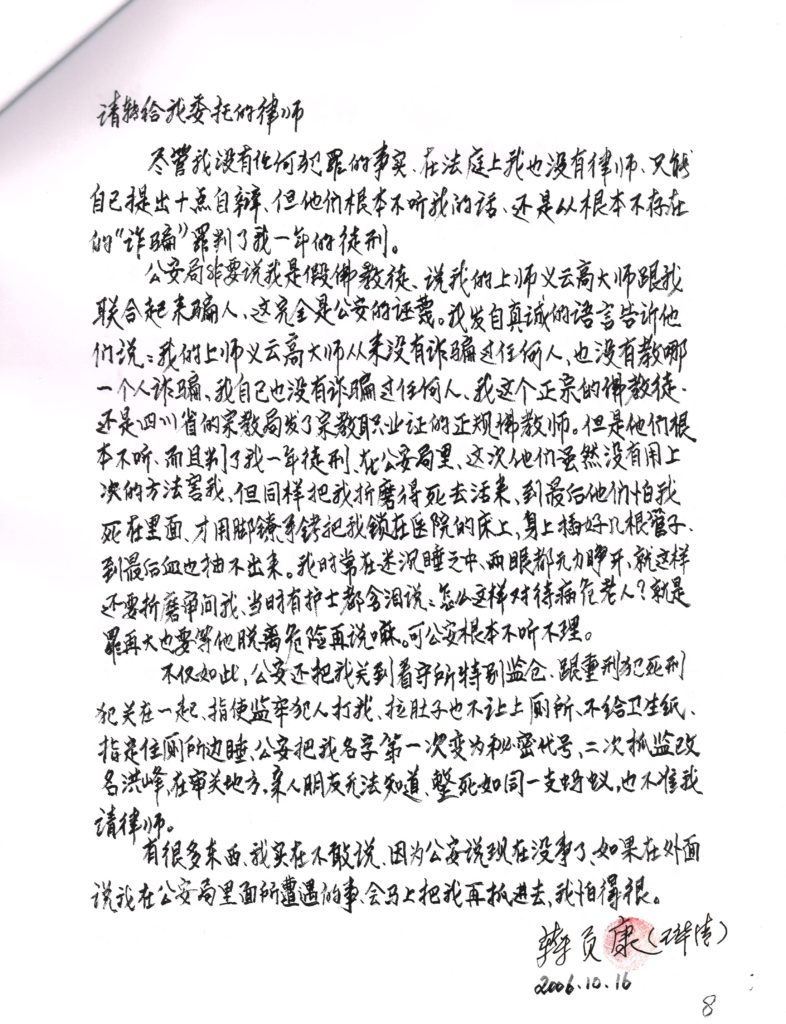 请转给我委托的律师
尽管我没有任何犯罪的事实、在法庭上我也没有律师、只能
自己提出十点自辩、但他们根本不听我的话、还是从根本不存在
的“诈骗”罪判了我一年的徒刑。
公安局非要说我是假佛教徒、说我的上师义云高大师跟我
联合起来骗人、这完全是公安的诬蔑。我发自真诚的语言告诉他
们说：我的上师义云高大师从来没有诈骗过任何人、也没有教哪
一个人诈骗、我自己也没有诈骗过任何人、我这个正宗的佛教徒、
还是四川省的宗教局发了宗教职业证的正规佛教师。但是他们根
本不听、而且判了我一年徒刑、在公安局里、这次他们虽然没有用上
次的方法害我、但同样把我折磨得死去活来、到最后他们怕我
死在里面、才用脚镣手铐把我锁在医院的床上，身上插好几根管子、
到最后血也抽不出来。我时常在迷沉睡之中、两眼都无力睁开，就这样
还要折磨审问我、当时有护士都含泪说：怎么这样对待病危老人？就是
罪再大也要等他脱离危险再说嘛。可公安根本不听不理。
不仅如此，公安还把我关到看守所特别监仓、跟重刑犯死刑
犯关在一起、指使监牢犯人打我、拉肚子也不让上厕所、不给卫生纸、
指定住厕所边睡、公安把我名字第一次变为秘密代号、二次抓监改
名洪峰，在审关地方，亲人朋友无法知道、整死如同一支蚂蚁，也不准我
请律师。
有很多东西、我实在不敢说、因为公安说现在没事了、如果在外面
说我在公安局里面所遭遇的事、会马上把我再抓进去、我怕得很。
康
2006.10.16
8